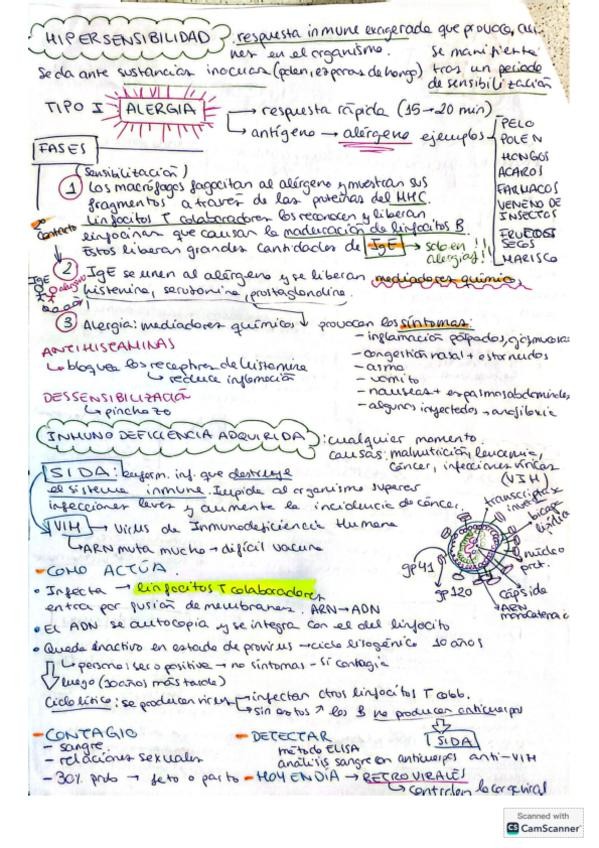 HIPERSENSIBILIDAD: respuesta inmune exagerada que provoca
en el organismo.
Se da ante sustancias inocuas (polen, esporas de hongo)
Se manifiesta
tras un periodo
de sensibilización
TIPO I ALERGIA
→ respuesta rápida (15→20 min)
→ antígeno → alérgeno ejemplos
PELO
POLEN
HONGOS
ACAROS
FARMACOS
VENENO DE
INSECTOS
FRUTOS
SECOS
MARISCO
FASES
(Sensibilización)
1 Los macrófagos fagocitan al alérgeno y muestran sus
fragmentos a través de las proteínas del MHC.
Linfocitos T colaboradores los reconocen y liberan
linfocinas que causan la maduración de linfocitos B.
Estos liberan grandes cantidades de IgE → solo en
alergias!!
2º
contacto
IgE
alérgeno
2 IgE se unen al alérgeno y se liberan mediadores químicos
histenina, serotonina, prostaglandina.
3 Alergia: mediadores químicos provocan los síntomas:
- inflamación párpados, ojos, mucosas
- congestión nasal + estornudos
- asma
- vomito
- nauseas + espasmos abdominales
- algunos inyectados → anafilaxia
ANTIHISTAMINAS
↳ bloquea los receptores de histenina
↳ reduce inflamación
DESSENSIBILIZACIÓN
↳ pinchazo
INMUNODEFICIENCIA ADQUIRIDA: cualquier momento.
causas: malnutrición, leucemia,
cáncer, infecciones víricas
(VIH)
SIDA: enferm. inf. que destruye
el sistema inmune. Impide al organismo superar
infecciones leves y aumenta la incidencia de cáncer.
VIH → Virus de Inmunodeficiencia Humana
↳ ARN muta mucho → difícil vacuna
transcriptasa
inversa
bicapa
lipídica
núcleo
prot.
cápsida
ARN
monocatenario
gp41
gp120
- COMO ACTÚA.
• Infecta → linfocitos T colaboradores
entra por fusión de membranas. ARN → ADN
• El ADN se autocopia y se integra con el del linfocito
• Queda inactivo en estado de provirus → ciclo lisogénico 10 años
↳ persona seropositiva → no síntomas - sí contagia
luego (10 años más tarde)
Ciclo lítico: se producen virus → infectan otros linfocitos T colab.
→ sin estos los B no producen anticuerpos
SIDA
- CONTAGIO
- sangre
- relaciones sexuales
- 30% prob → feto o parto
- DETECTAR
método ELISA
análisis sangre en anticuerpos anti-VIH
- HOY EN DÍA → RETROVIRALES
↳ controlan la carga viral
Scanned with
CS CamScanner